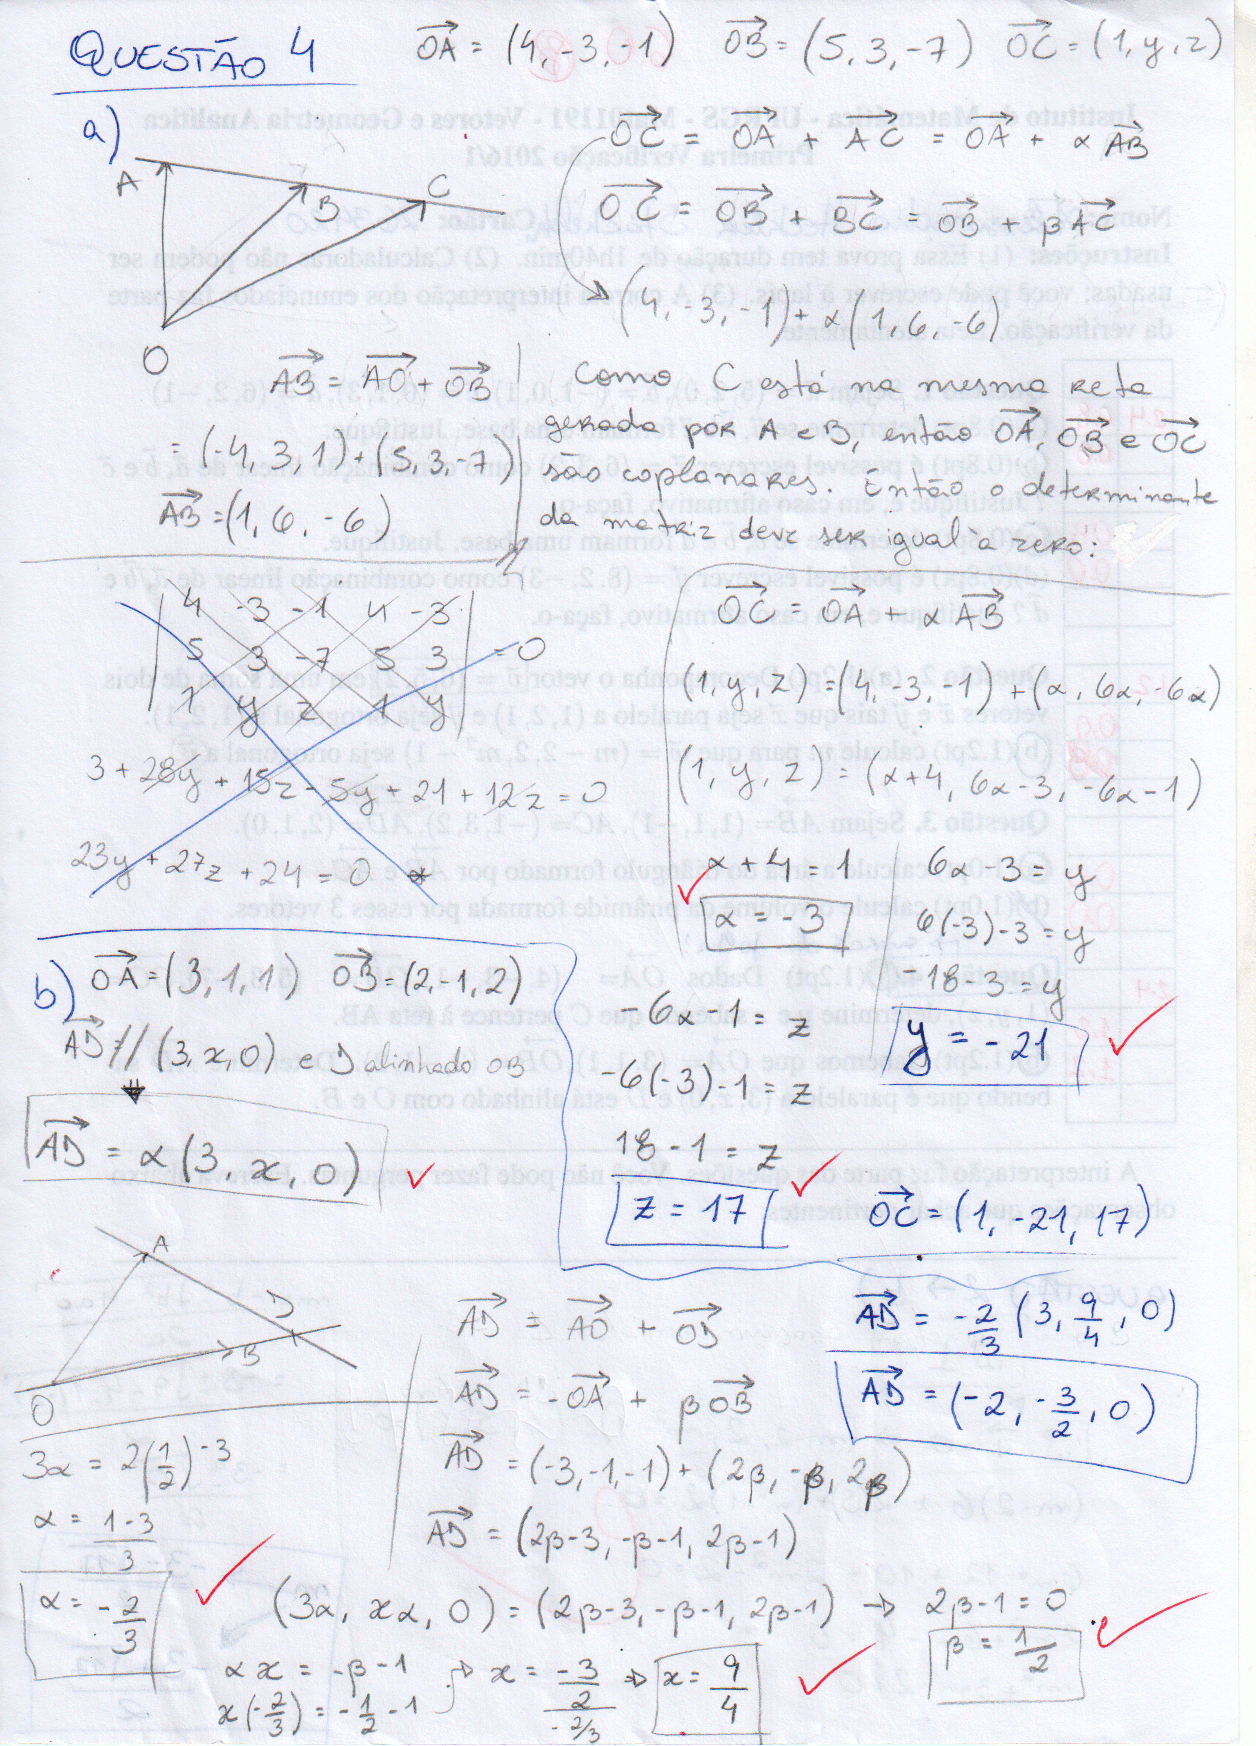 QUESTÃO 4
OA = (4, -3, -1) OB = (5, 3, -7) OC = (1, y, z)
a)
A B C O
OC = OA + AC = OA + α AB
OC = OB + BC = OB + β AC
(4, -3, -1) + α(1, 6, -6)
AB = AO + OB
= (-4, 3, 1) + (5, 3, -7)
AB = (1, 6, -6)
Como C está na mesma reta
gerada por A e B, então OA, OB e OC
são coplanares. Então o determinante
da matriz deve ser igual a zero:
4 -3 -1 4 -3
5 3 -7 5 3 = 0
1 y z 1 y
3 + 28y + 15z - 5y + 21 + 12z = 0
23y + 27z + 24 = 0 *
OC = OA + αAB
(1, y, z) = (4, -3, -1) + (α, 6α, -6α)
(1, y, z) = (α+4, 6α-3, -6α-1)
α + 4 = 1
α = -3
6α - 3 = y
6(-3) - 3 = y
-18 - 3 = y
y = -21
-6α - 1 = z
-6(-3) - 1 = z
18 - 1 = z
z = 17
OC = (1, -21, 17)
b) OA = (3, 1, 1) OB = (2, -1, 2)
AD // (3, x, 0) e D alinhado OB
AD = α(3, x, 0)
A D B O
AD = AO + OD
AD = -OA + βOB
AD = (-3, -1, -1) + (2β, -β, 2β)
AD = (2β-3, -β-1, 2β-1)
(3α, xα, 0) = (2β-3, -β-1, 2β-1) → 2β-1 = 0
β = 1/2
3α = 2(1/2) - 3
α = 1-3/3
α = -2/3
αx = -β - 1
x(-2/3) = -1/2 - 1
x = -3/2/-2/3 → x = 9/4
AD = -2/3 (3, 9/4, 0)
AD = (-2, -3/2, 0)